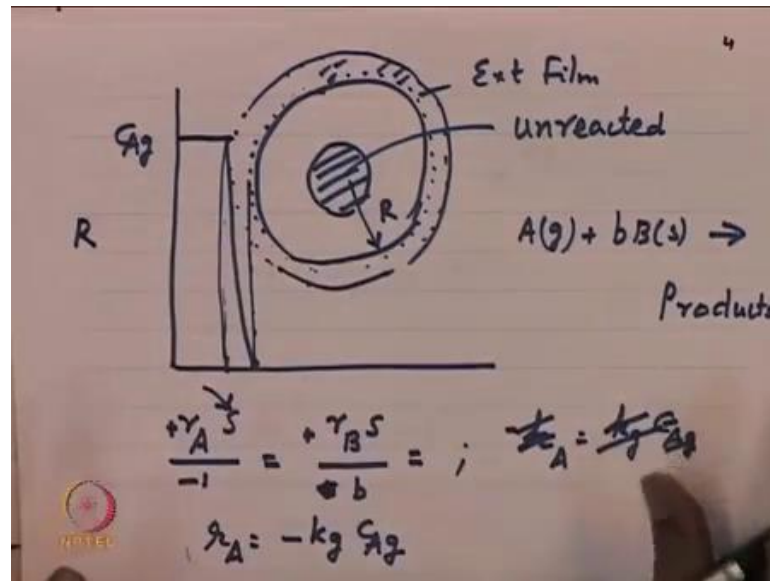 4
Ext Film
unreacted
C_Ag
R
R
A(g) + bB(s) →
Products
+r_A S / -1 = +r_B S / b = ;
r_A = -kg C_Ag
NPTEL